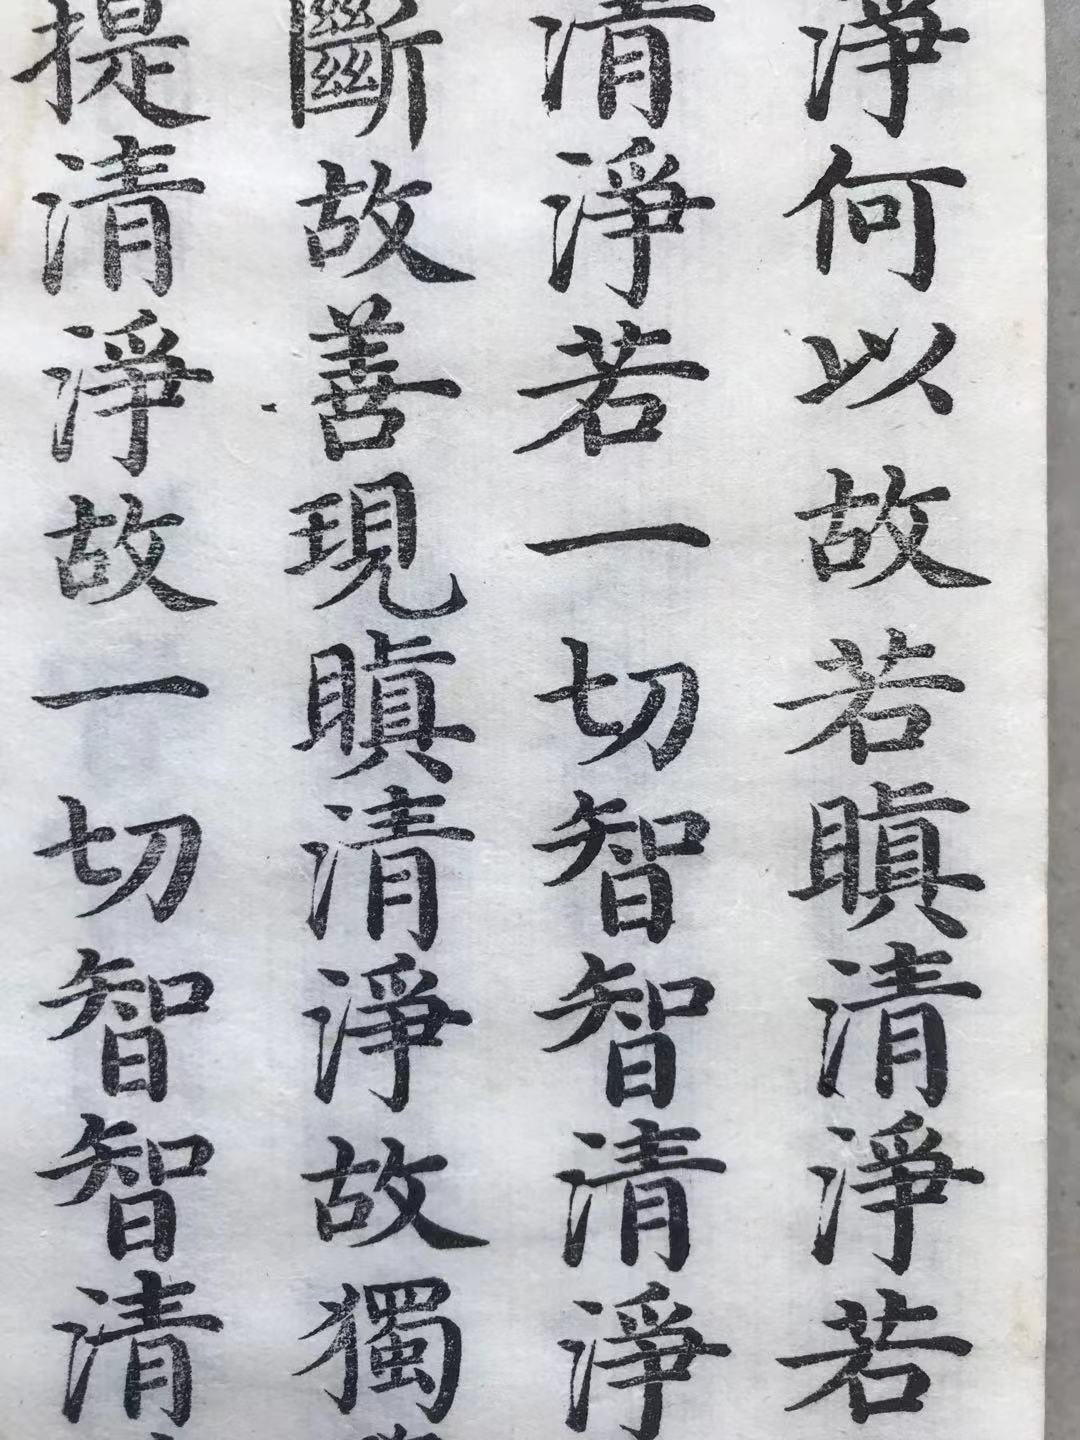 淨何以故若瞋清淨若
清淨若一切智智清淨
斷故善現瞋清淨故獨
提清淨故一切智智清